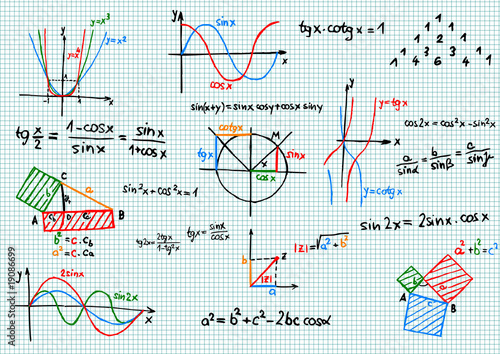 y=x³
y=x⁴
y=x²
y
1
-1
1
x
y
sinx
cosx
x
tgx·cotgx=1
1
1 1
1 2 1
1 3 3 1
1 4 6 4 1
sin(x+y)=sinx cosy+cosx siny
tg x/2 = 1-cosx/sinx = sinx/1+cosx
cotgx
M
tgx
sinx
x
cosx
y
y=tgx
x
y=cotgx
cos2x=cos²x-sin²x
a/sinα = b/sinβ = c/sinγ
C
b
a
A
D
B
b²=c·c_b
a²=c·c_a
sin²x+cos²x=1
tg2x= 2tgx/1-tg²x
tgx= sinx/cosx
b
z
|z|
a
|z|=√a²+b²
sin2x=2sinx·cosx
a²+b²=c²
b
a
A
c
B
y
2sinx
sin2x
x
a²=b²+c²-2bc cosα
Adobe Stock | #19086699